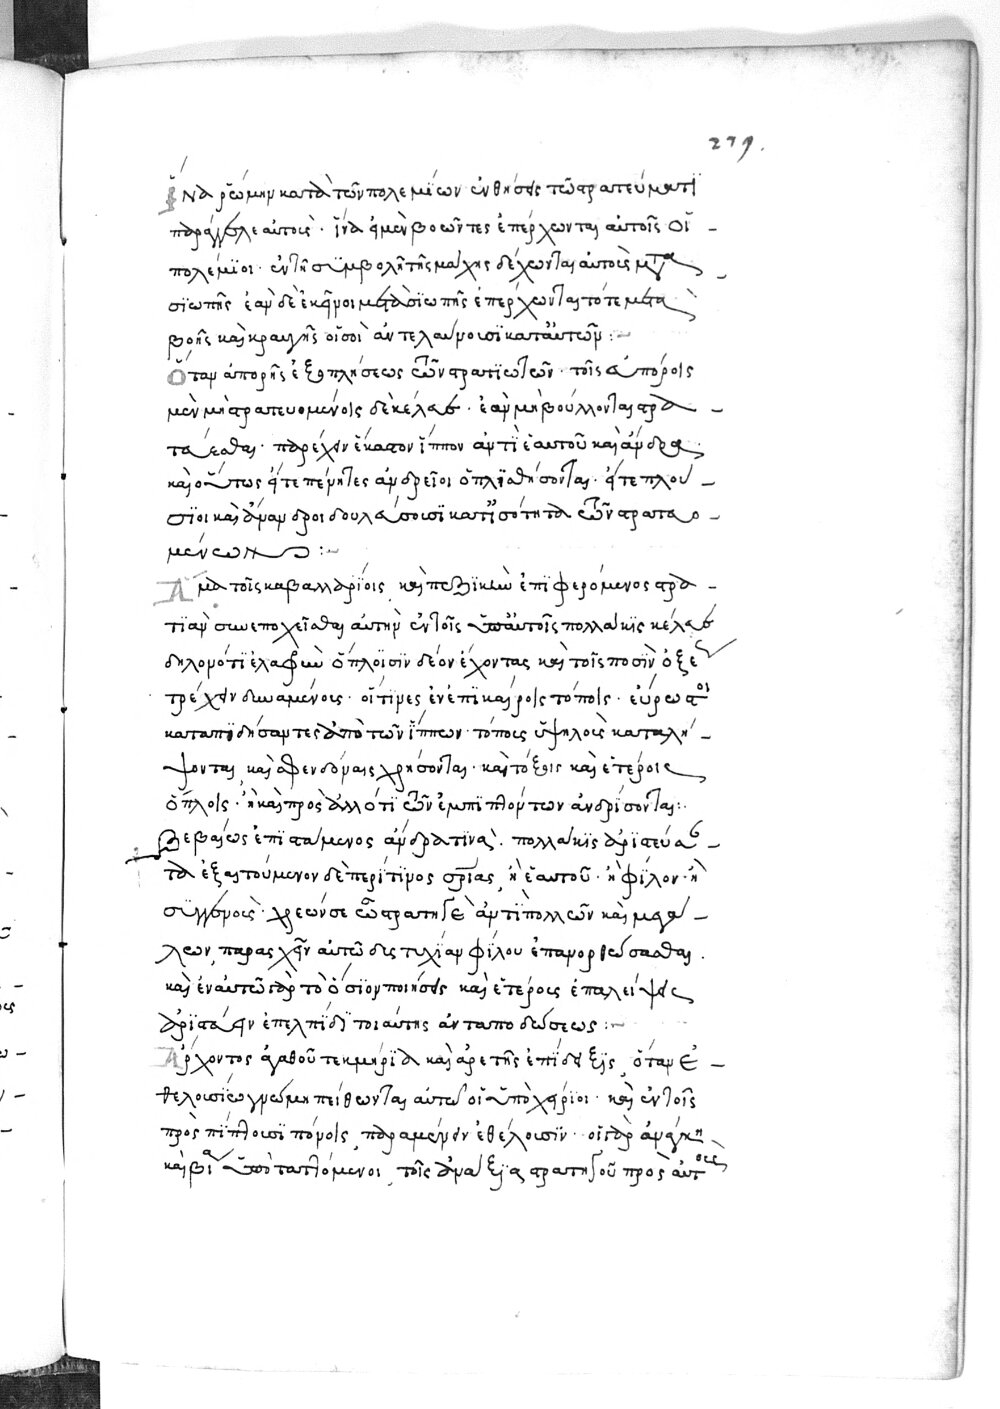 279.
ἵνα ῥώμην κατὰ τῶν πολεμίων ἐνθήσης τῶ στρατεύματι
παράγγελλε αὐτοῖς· ἵνα εἰ μὲν βοῶντες ἐπέρχωνται αὐτοῖς οἱ
πολέμιοι· ἐν τῇ συμβολῇ τῆς μάχης δέχωνται αὐτοὺς μετὰ
σιωπῆς ἐὰν δὲ ἐκεῖνοι μετὰ σιωπῆς ἐπέρχωνται τότε μετὰ
βοῆς καὶ κραυγῆς οἱ σοὶ ἀντελαύνουσι κατ' αὐτῶν:
Ὅταν ἀπορῆς ἐξοπλήσεως τῶν στρατιωτῶν· τοῖς εὐπόροις
μὲν μὴ στρατευομένοις δὲ κέλευε· ἐὰν μὴ βούλλονται στρα
τεύεσθαι· παρέχειν ἕκαστον ἵππον ἀντὶ ἑαυτοῦ καὶ ἄνδρα
καὶ οὕτως οἵ τε πένητες ἀνδρεῖοι ὁπλισθήσονται· οἵ τε πλού
σιοι καὶ ἄνανδροι δουλεύσουσι κατ' ἰσότητα τῶν στρατευο
μένων:
Ἅμα τοῖς καβαλλαρίοις καὶ πεζικὴν ἐπιφερόμενος στρα
τιὰν συνεποχεῖσθαι αὐτὴν ἐν τοῖς ὑπ' αὐτοῖς πολλάκις κέλευε
δηλονότι ἐλαφρὸν ὅπλοισιν δέον ἔχοντας καὶ τοῖς ποσὶν ὀξέως
τρέχειν δυναμένοις· οἵτινες ἐν ἐπικαίροις τόποις· εὐρώστοι
καταπηδήσαντες ἀπὸ τῶν ἵππων τόπους ὑψηλοὺς καταλή
ψονται καὶ σφενδόναις χρήσονται· καὶ τόξοις καὶ ἑτέροις
ὅπλοις· ἢ καὶ πρὸς ἄλλό τι τῶν ἐμπιπλόντων ἀνδρίσονται:
Βεβαίως ἐπιστάμενος ἄνδρα τινὰ· πολλάκις ἀριστεύσαν
τα ἐξαιτούμενον δὲ περί τινος σωτηρίας ἢ ἑαυτοῦ· ἢ φίλον· ἢ
συγγενοῦς· χρεών σε ὦ στρατηγὲ ἀντὶ πολλῶν καὶ μεγά
λων παρασχεῖν αὐτῶ δυστυχίαν φίλου ἐπανορθώσασθαι.
καὶ ἐν αὐτῶ γὰρ τὸ ὅσιον ποιήσεις καὶ ἑτέροις ἐπαλείψεις
ἀριστεύειν ἐπ' ἐλπίδι τοιαύτης ἀνταποδώσεως:
Ἄρχοντος ἀγαθοῦ τεκμήρια καὶ ἀρετῆς ἐπίδειξις ὅταν ἐ
θελουσίω γνώμη πείθωνται αὐτῶ οἱ ὑποχείριοι· καὶ ἐν τοῖς
προσπίπτουσι πόνοις παραμένειν ἐθέλουσιν· οἱ γὰρ ἀνάγκη
καὶ βία ὑποταττόμενοι τοῖς ἀναξίως στρατηγοῦ πρὸς αὐτοὺς